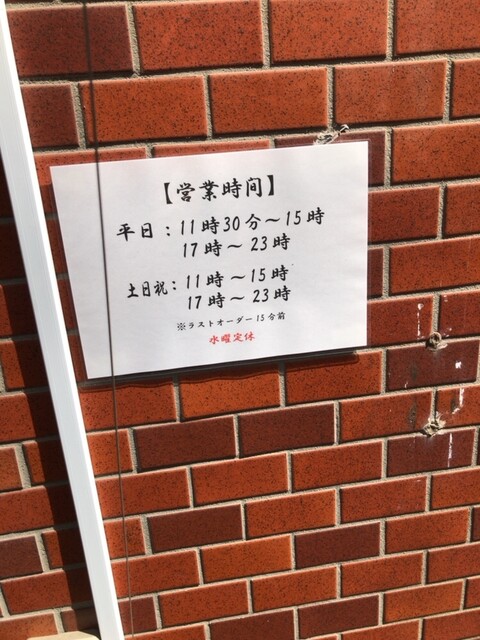 【営業時间】
平日：11時30分～15時
17時～23時
土日祝：11時～15時
17時～23時
※ラストオーダー15分前
水曜定休